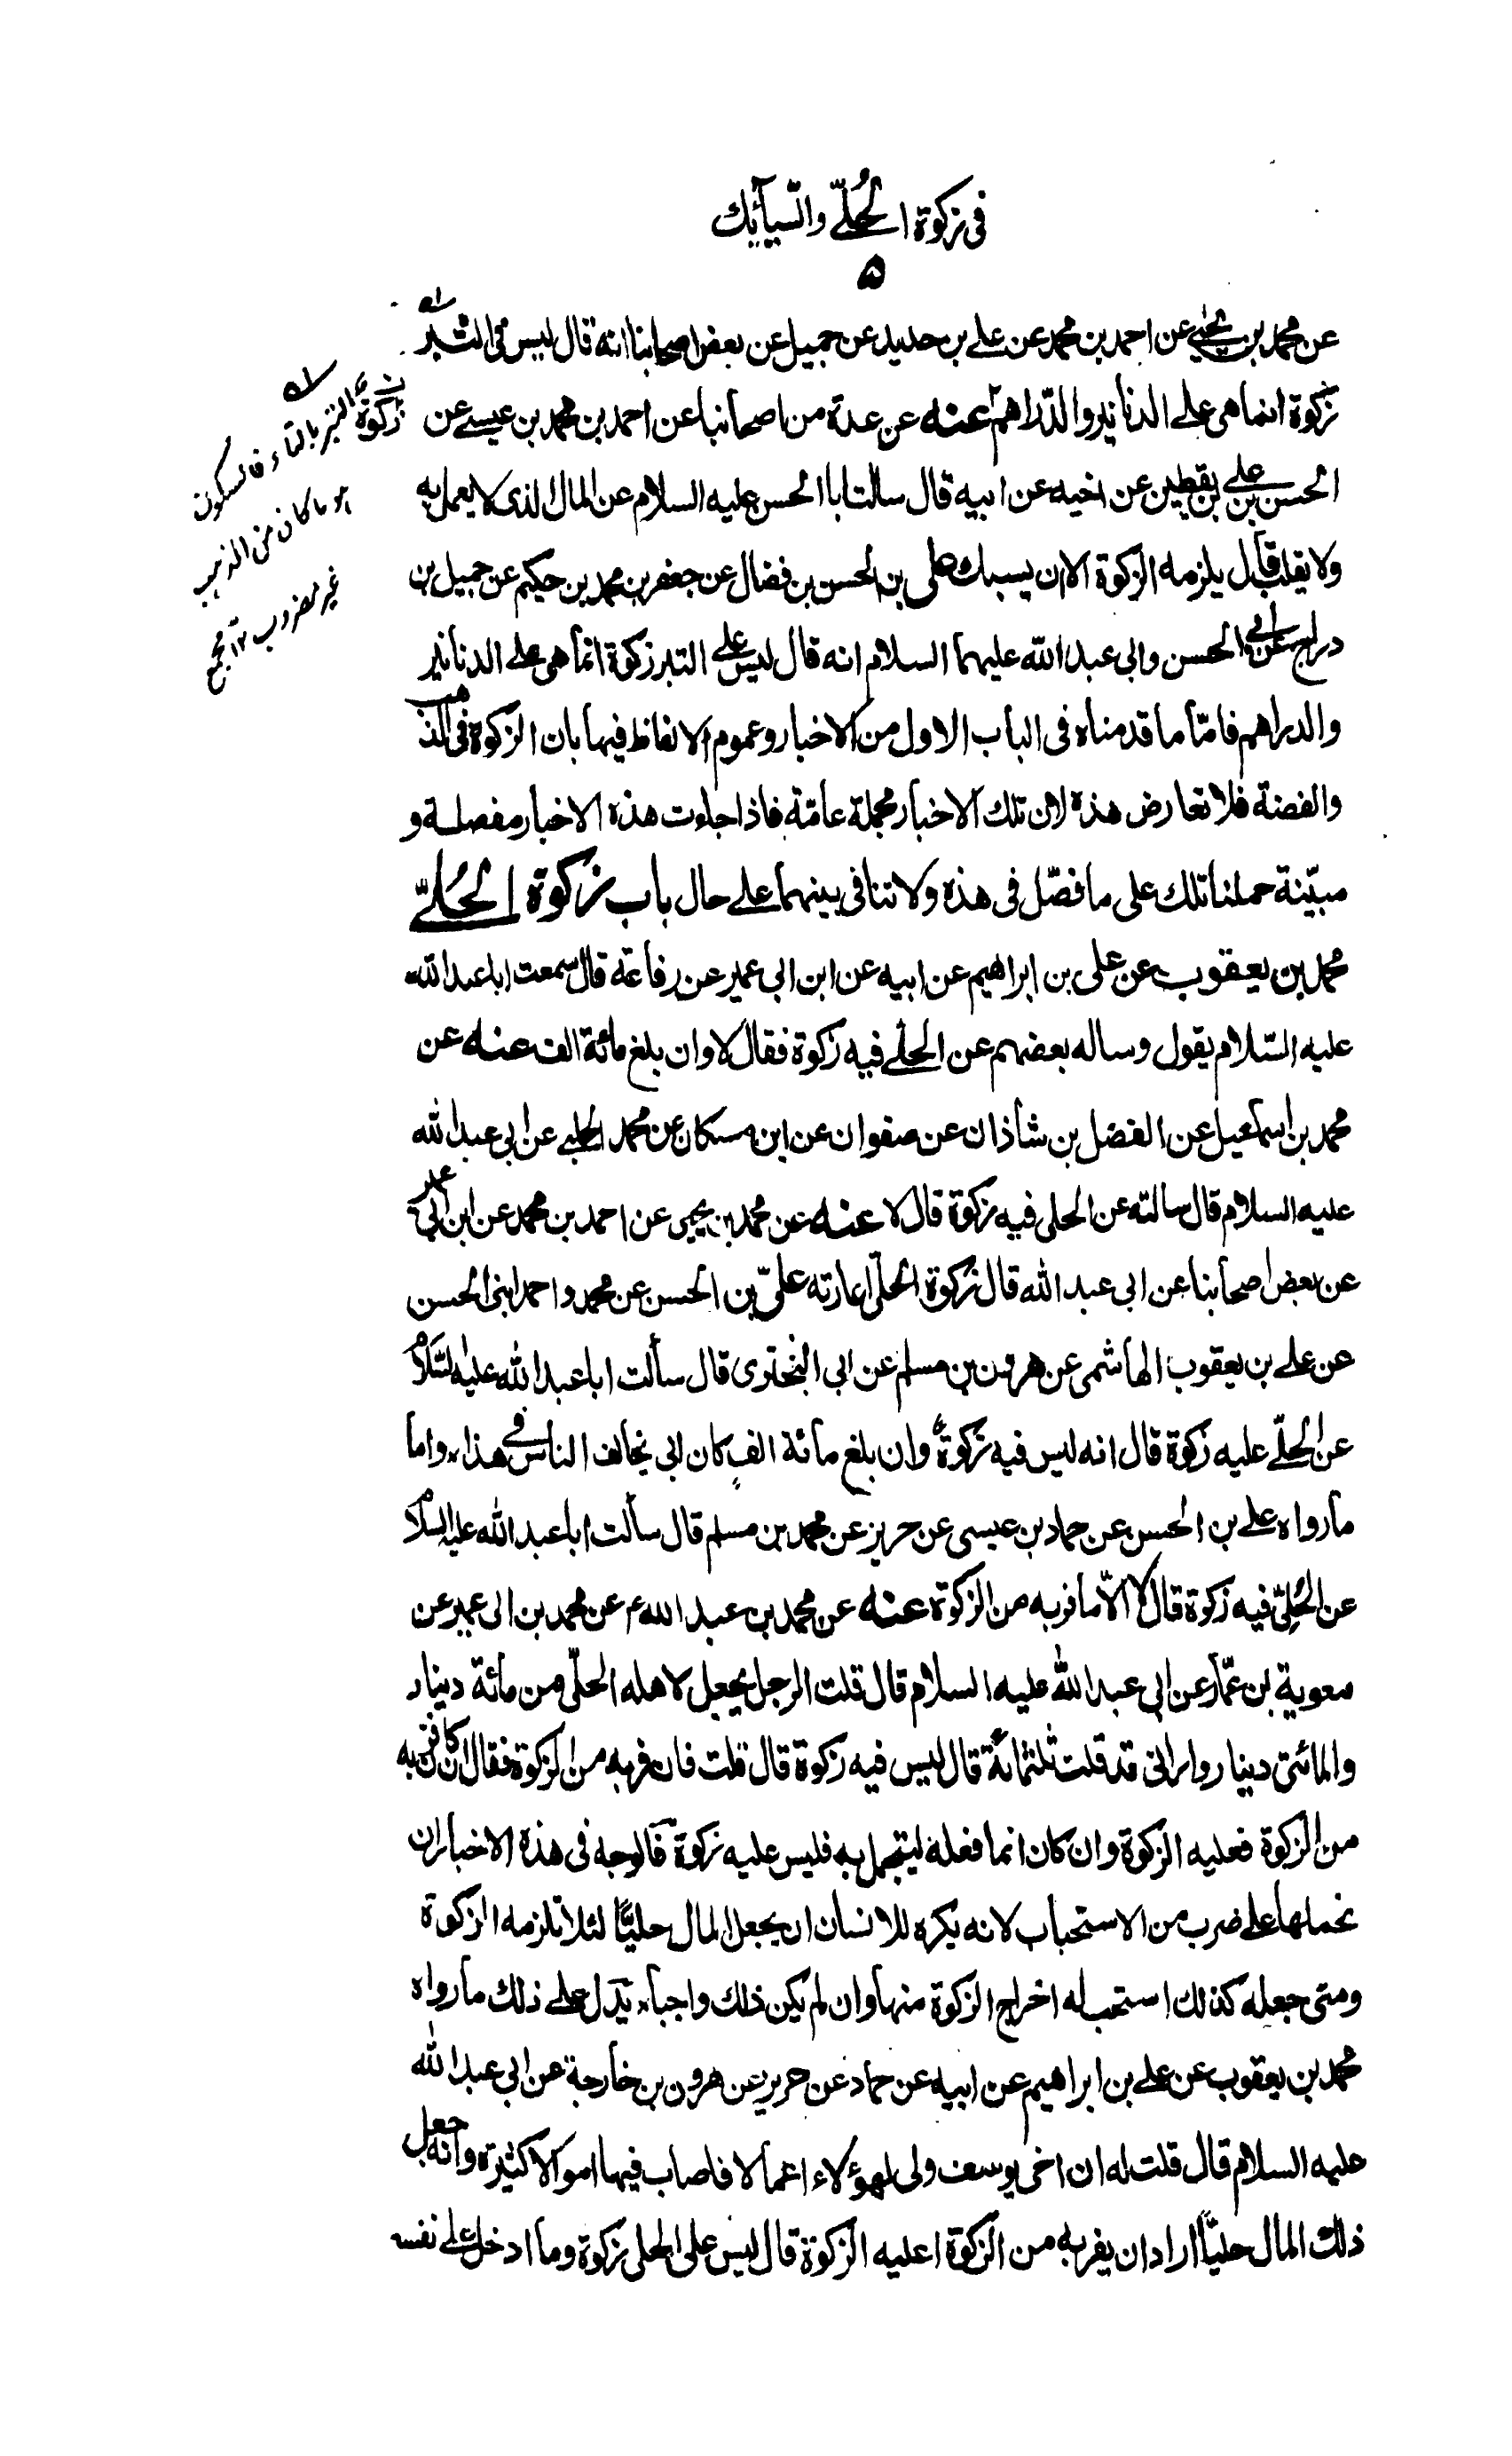 في زكوة الحُلّي والسبائك
۵
عن محمد بن يحيى عن احمد بن محمد عن علي بن حديد عن جميل عن بعض اصحابنا انه قال ليس في التبر
زكوة انما هي على الدنانير والدّراهم عنه عن عدة من اصحابنا عن احمد بن محمد بن عيسى عن
الحسن بن علي بن يقطين عن اخيه عن ابيه قال سالت ابا الحسن عليه السلام عن المال الذي لا يعمل به
ولا يقلب قال يلزمه الزكوة الا ان يسبك علي بن الحسن بن فضال عن جعفر بن محمد بن حكيم عن جميل بن
دراج عن ابي الحسن وابي عبد الله عليهما السلام انه قال ليس على التبر زكوة انما هي على الدنانير
والدراهم فامّا ما قدمناه في الباب الاول من الاخبار وعموم الالفاظ فيها بان الزكوة في الذهب
والفضة فلا تعارض هذه لان تلك الاخبار مجملة عامّة فاذا جاءت هذه الاخبار مفصلة و
مبيّنة حملنا تلك على ما فصّل في هذه ولا تنافي بينهما على حال باب زكوة الحُلّي
محمد بن يعقوب عن علي بن ابراهيم عن ابيه عن ابن ابي عمير عن رفاعة قال سمعت ابا عبد الله
عليه السّلام يقول وساله بعضهم عن الحلّي فيه زكوة فقال لا وان بلغ مائة الف عنه عن
محمد بن اسماعيل عن الفضل بن شاذان عن صفوان عن ابن مسكان عن محمد الحلبي عن ابي عبد الله
عليه السلام قال سالته عن الحلي فيه زكوة قال لا عنه عن محمد بن يحيى عن احمد بن محمد عن ابن ابي عمير
عن بعض اصحابنا عن ابي عبد الله قال زكوة الحلّي اعارته علىّ بن الحسن عن محمد واحمد ابني الحسن
عن علي بن يعقوب الهاشمي عن هرون بن مسلم عن ابي البختري قال سألت ابا عبد الله عليه السّلام
عن الحلّي عليه زكوة قال انه ليس فيه زكوة وان بلغ مائة الف كان ابي يخالف الناس في هذا واما
ما رواه علي بن الحسن عن حماد بن عيسى عن حريز عن محمد بن مسلم قال سألت ابا عبد الله عليه السلام
عن الحُليّ فيه زكوة قال لا الّا ما فر به من الزكوة عنه عن محمد بن عبد الله عن محمد بن ابي عمير عن
معوية بن عمّار عن ابي عبد الله عليه السلام قال قلت الرجل يجعل لاهله الحلّي من مائة دينار
والمائتي دينار واراني قد قلت ثلثمائة قال ليس فيه زكوة قال قلت فان فر به من الزكوة فقال ان كان فر به
من الزكوة فعليه الزكوة وان كان انما فعله ليتجمل به فليس عليه زكوة فالوجه في هذه الاخبار ان
نحملها على ضرب من الاستحباب لانه يكره للانسان ان يجعل المال حليًّا لئلا تلزمه الزكوة
ومتى جعله كذلك استحب له اخراج الزكوة منها وان لم يكن ذلك واجبا يدل على ذلك ما رواه
محمد بن يعقوب عن علي بن ابراهيم عن ابيه عن حماد عن حريز عن هرون بن خارجة عن ابي عبد الله
عليه السلام قال قلت له ان اخي يوسف ولي لهؤلاء اعمالا فاصاب فيها اموالا كثيرة وانه جعل
ذلك المال حليّا اراد ان يفر به من الزكوة اعليه الزكوة قال ليس على الحلي زكوة وما ادخل على نفسه
زكوة
التبر بالتاء فالسكون
هو ما كان من الذهب
غير مضروب مجمع